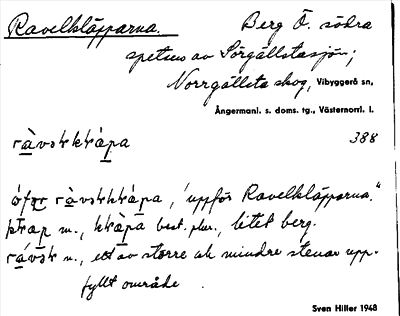 Ravelkläpparna. Berg Ö. södra
spetsen av Sörgällstasjön;
Norrgällsta skog, Vibyggerå sn,
Ångermanl. s. doms. tg., Västernorrl. l.
388
"uppför Ravelkläpparna."
m., best. plur., litet berg.
n., ett av större och mindre stenar upp-
fyllt område.
Sven Hiller 1948